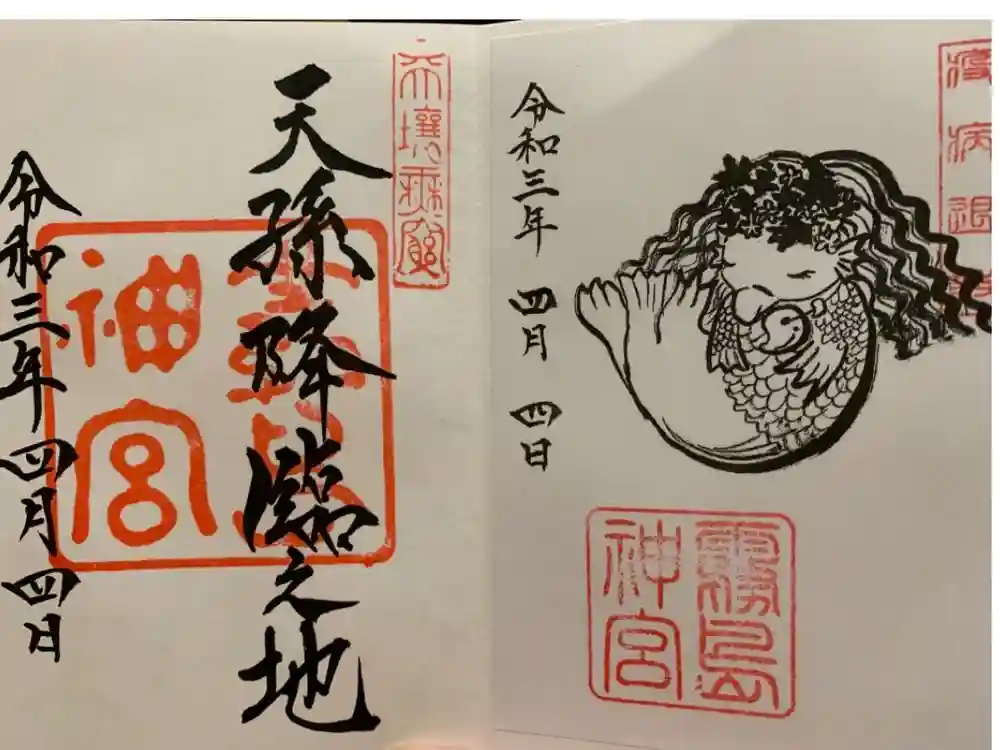 疫病退
令和三年 四月 四日
霧島
神宮
天壤無窮
天孫降臨之地
霧島
神宮
令和三年四月四日